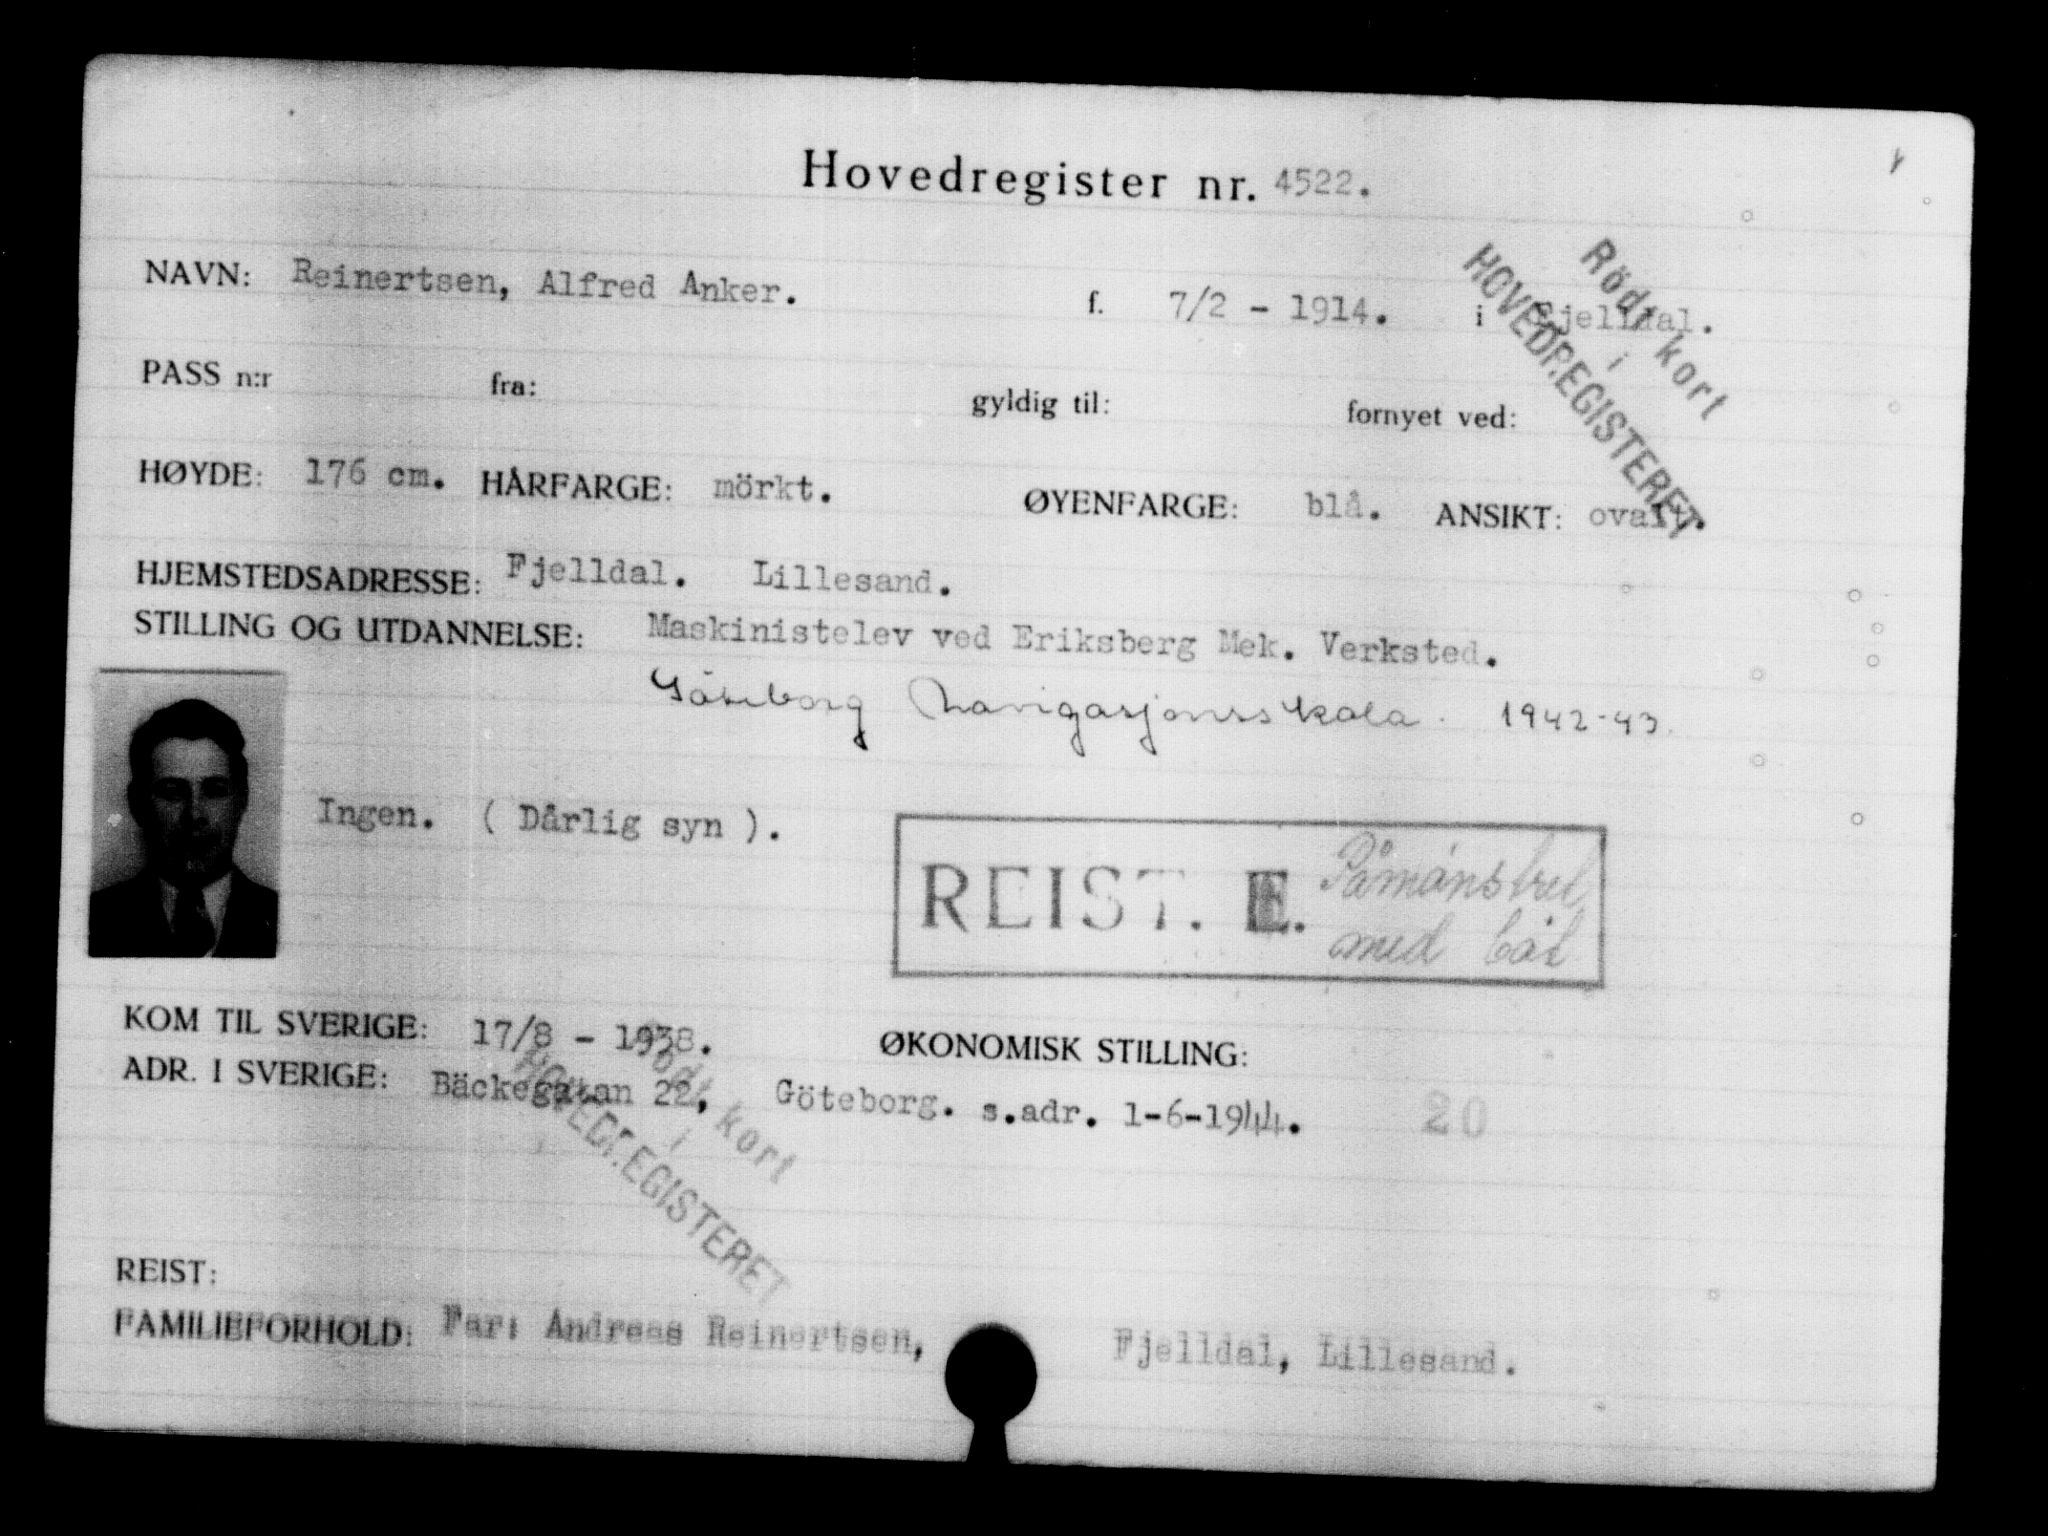 Hovedregister nr. 4522.
NAVN: Reinertsen, Alfred Anker. f. 7/2 - 1914. i Fjelldal.
Rödt kort
i
HOVEDREGISTERET
PASS n:r fra: gyldig til: fornyet ved:
HØYDE: 176 cm. HÅRFARGE: mörkt. ØYENFARGE: blå. ANSIKT: ovalt.
HJEMSTEDSADRESSE: Fjelldal. Lillesand.
STILLING OG UTDANNELSE: Maskinistelev ved Eriksberg Mek. Verksted.
Göteborg Navigasjonsskola. 1942-43.
Ingen. ( Dårlig syn ).
REIST. E. Påmönstret
med båt
KOM TIL SVERIGE: 17/8 - 1938. ØKONOMISK STILLING:
ADR. I SVERIGE: Bäckegatan 22, Göteborg. s.adr. 1-6-1944. 20
Rödt kort
i
HOVEDREGISTERET
REIST:
FAMILIEFORHOLD: Far: Andreas Reinertsen, Fjelldal, Lillesand.